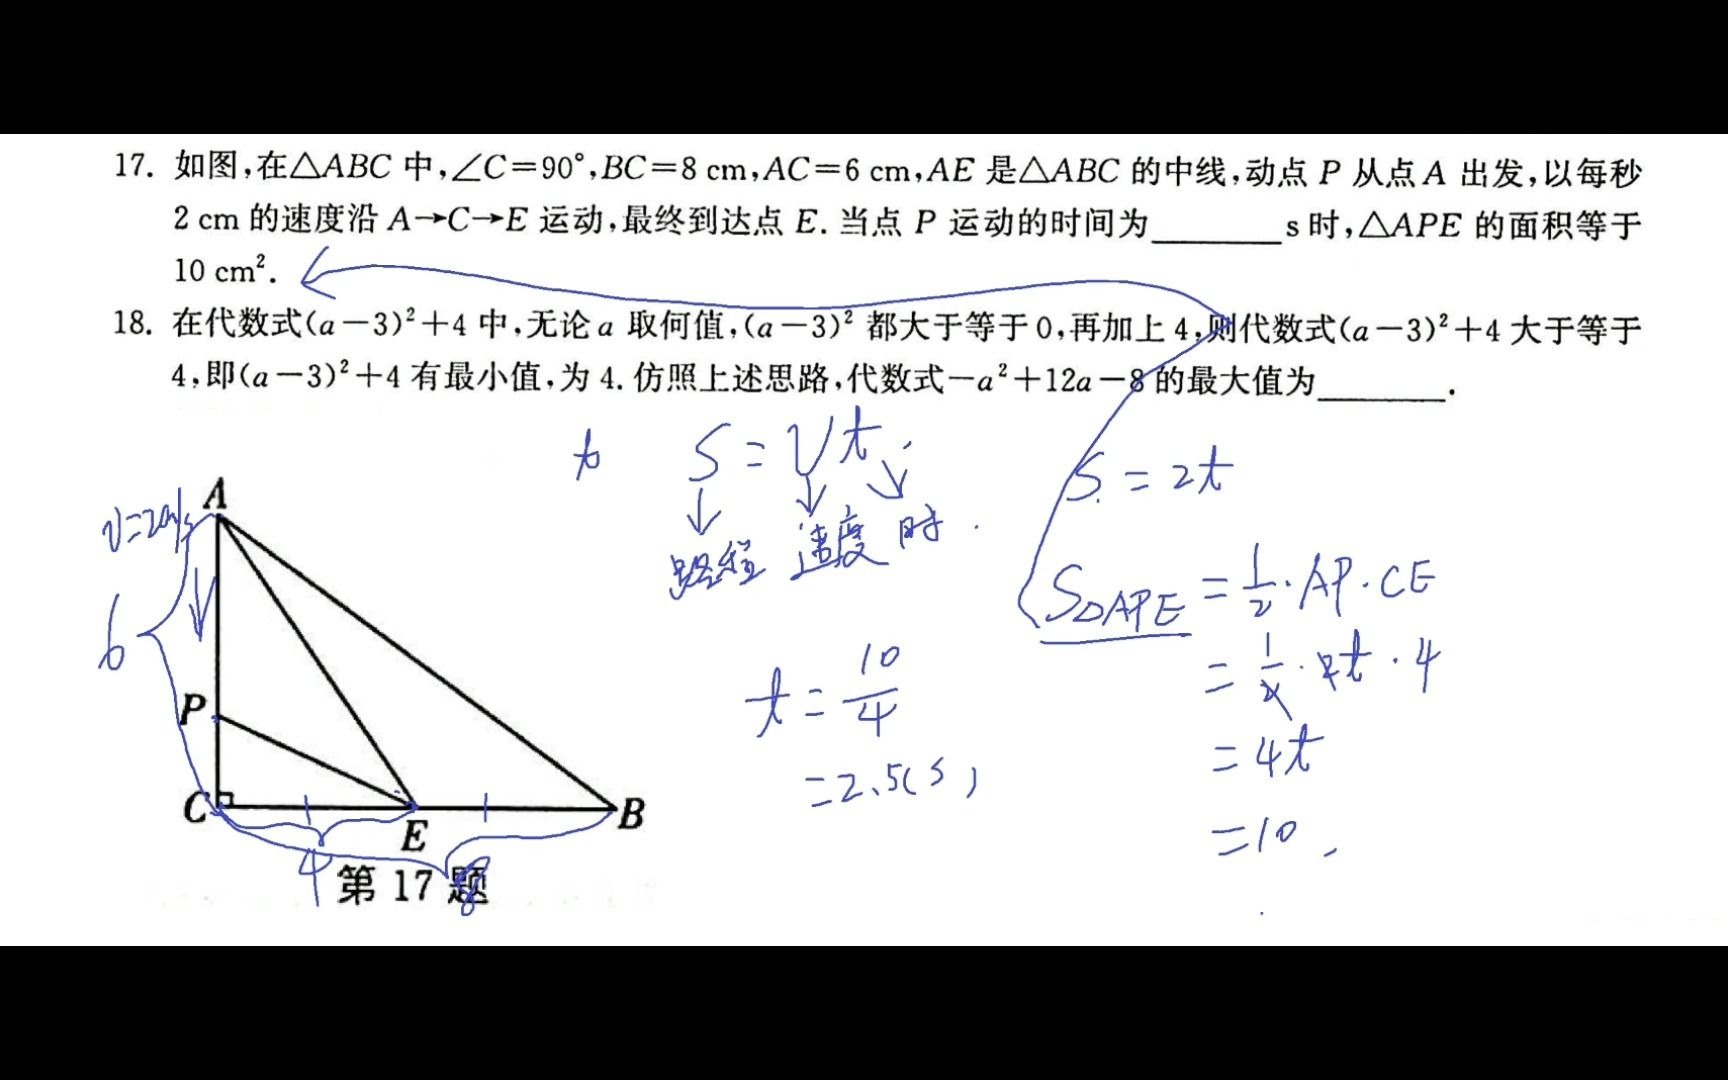 17. 如图,在△ABC 中,∠C=90°,BC=8 cm,AC=6 cm,AE 是△ABC 的中线,动点 P 从点 A 出发,以每秒
2 cm 的速度沿 A→C→E 运动,最终到达点 E. 当点 P 运动的时间为________s 时,△APE 的面积等于
10 cm².
18. 在代数式(a-3)²+4 中,无论 a 取何值,(a-3)² 都大于等于 0,再加上 4,则代数式(a-3)²+4 大于等于
4,即(a-3)²+4 有最小值,为 4. 仿照上述思路,代数式-a²+12a-8 的最大值为________.
t S=Vt
路程 速度 时
S=2t
S△APE = 1/2·AP·CE
= 1/2·2t·4
=4t
=10
t=10/4
=2.5(s)
A
6
P
C
E
B
4
8
第 17 题